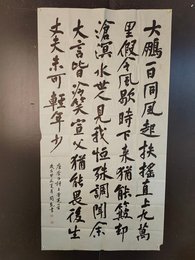 大鵬一日同風起扶搖直上九萬
里假令風歇時下来猶能簸却
滄溟水世人見我恒殊調聞余
大言皆冷笑宣父猶能畏後生
丈夫未可輕年少